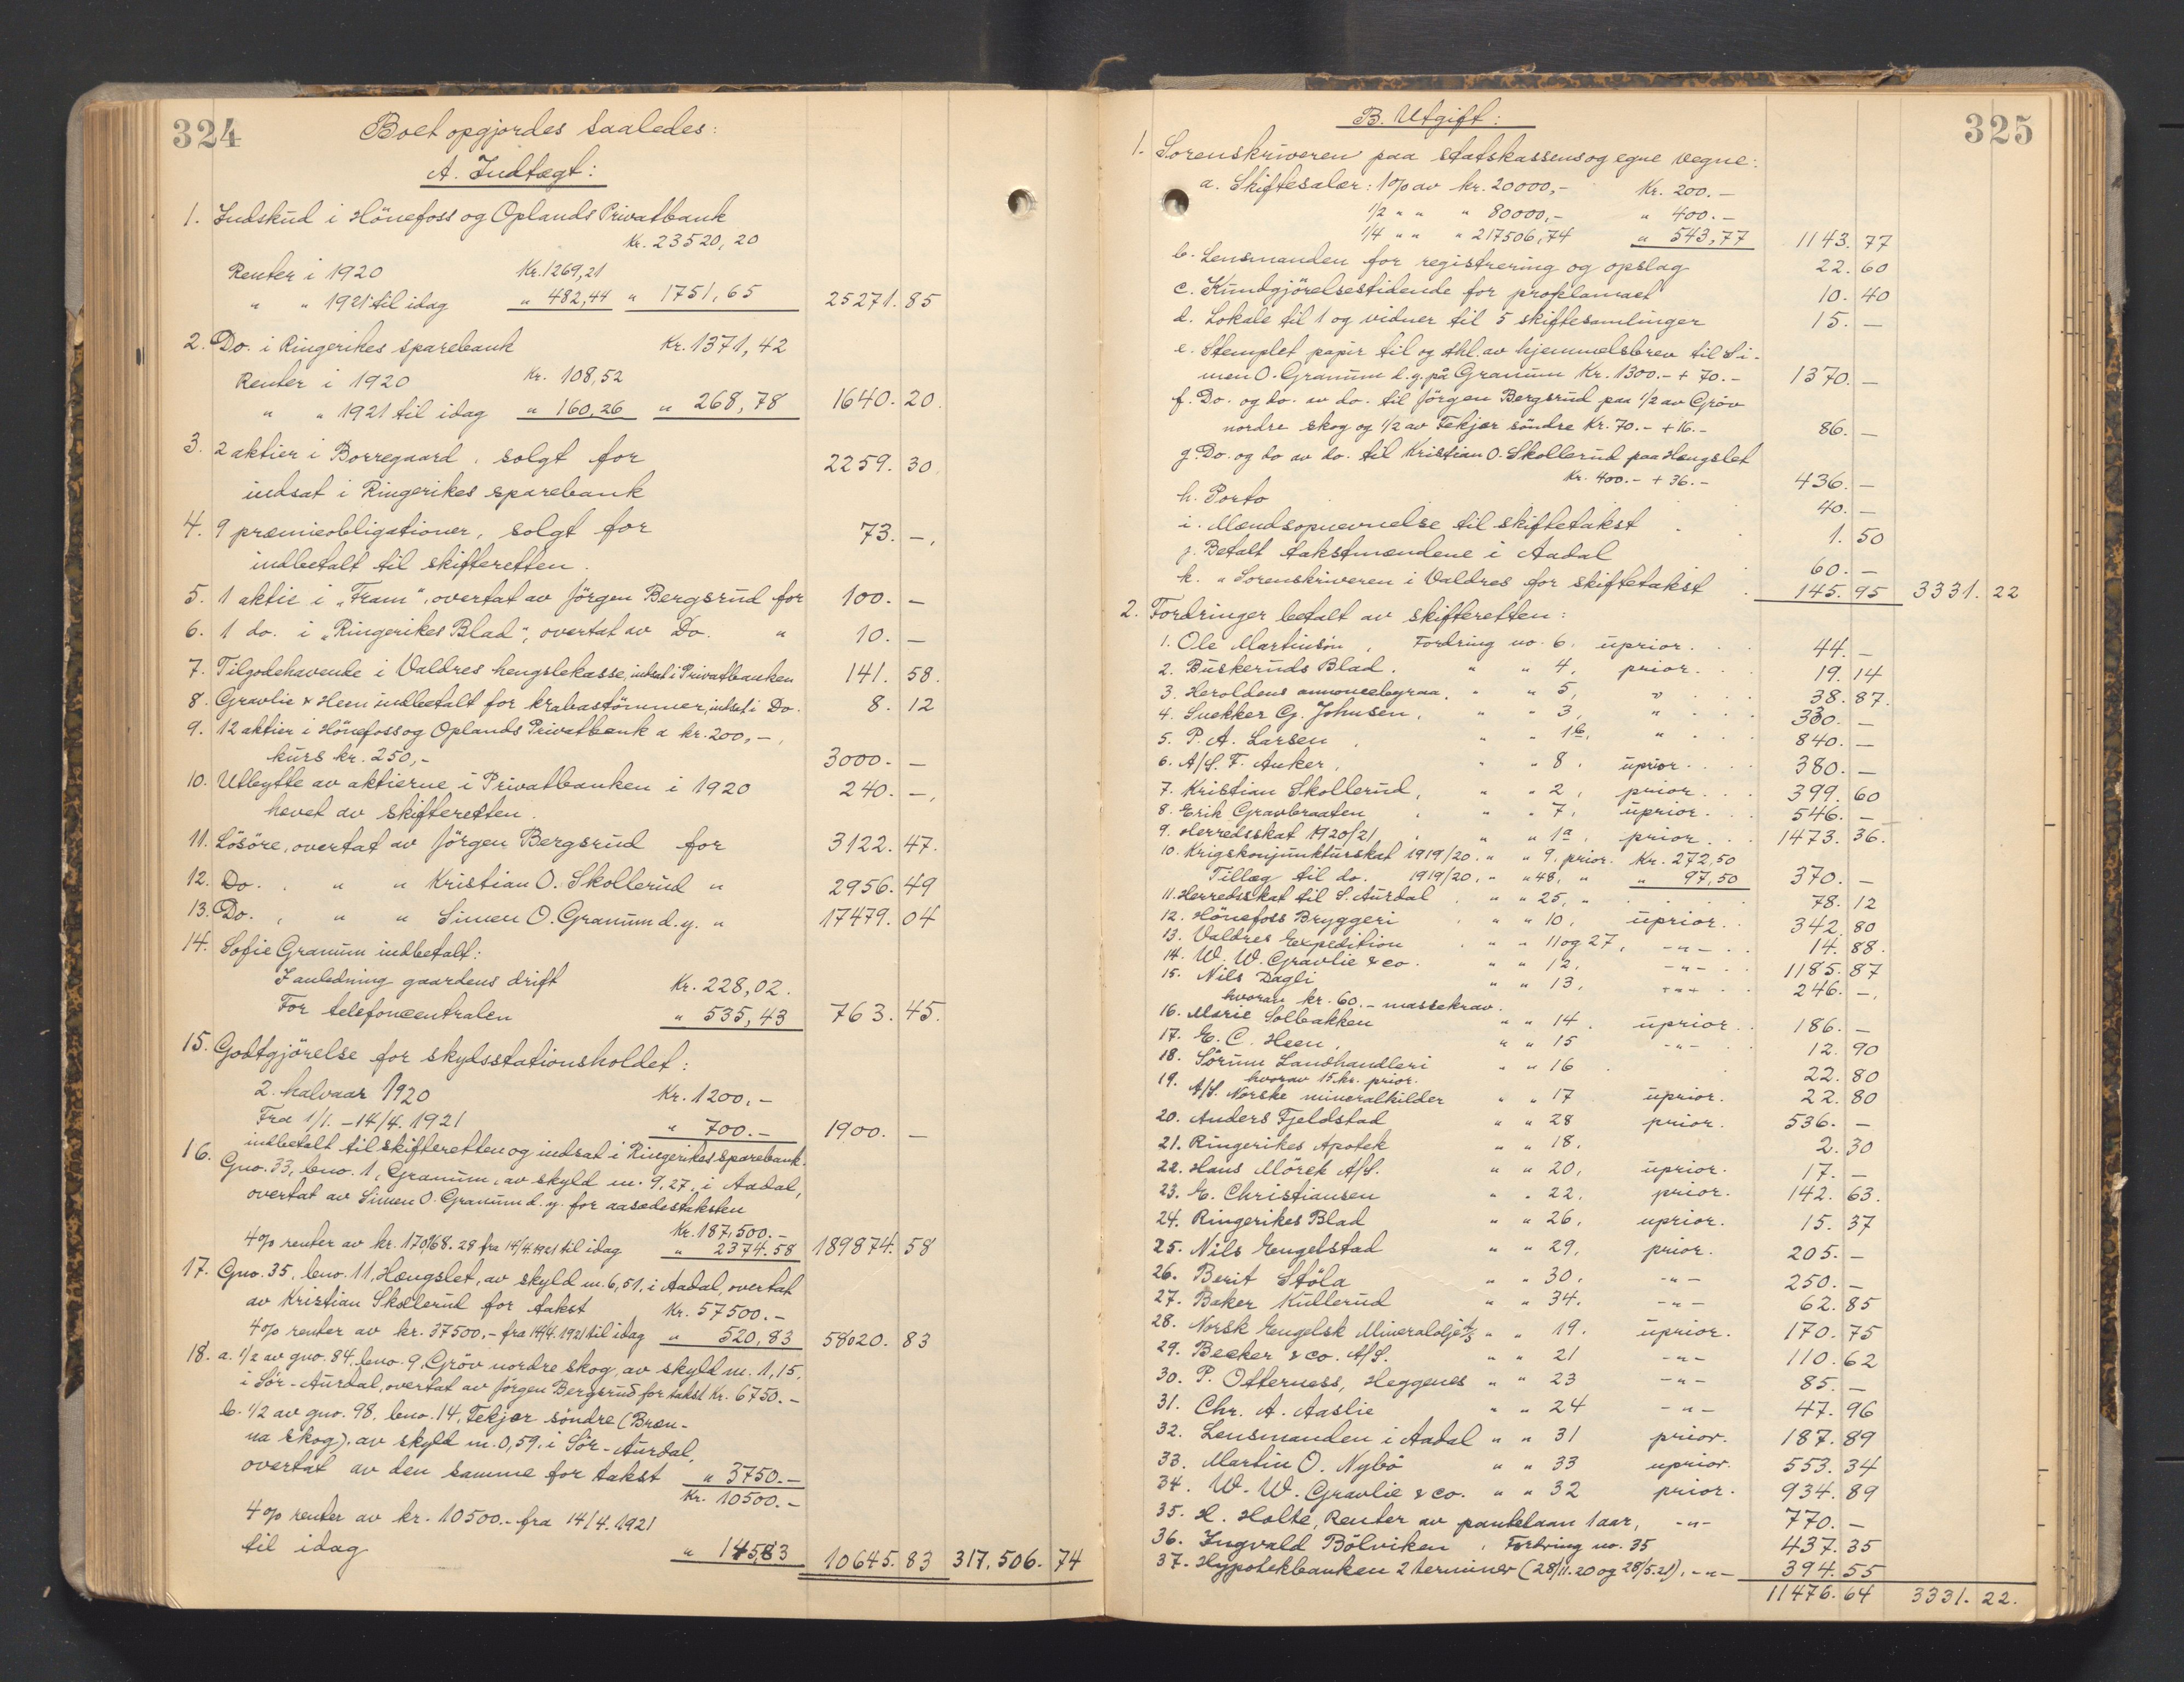 324
Boet opgjordes saaledes:
A. Indtægt:
1. Indskud i Hönefoss og Oplands Privatbank
Kr. 23520,20
Renter i 1920 Kr. 1269,21
" " 1921 til idag " 482,44 " 1751,65 25271.85
2. Do. i Ringerikes sparebank Kr. 1371,42
Renter i 1920 Kr. 108,52
" " 1921 til idag " 160,26 " 268,78 1640.20.
3. 2 aktier i Borregaard, solgt for 2259.30.
indsat i Ringerikes sparebank
4. 9 præmieobligationer, solgt for 73.-.
indbetalt til skifteretten.
5. 1 aktie i "Fram", overtat av Jörgen Bergsrud for 100.-
6. 1 do. i "Ringerikes Blad", overtat av Do. " 10.-
7. Tilgodehavende i Valdres hengslekasse, indsat i Privatbanken 141.58.
8. Gravlie & Heen indbetalt for krabastömmer, indsat i Do. 8.12
9. 12 aktier i Hönefoss og Oplands Privatbank a kr. 200,-,
kurs kr. 250,- 3000.-
10. Utbytte av aktierne i Privatbanken i 1920 240.-,
hevet av skifteretten.
11. Lösöre, overtat av Jörgen Bergsrud for 3122.47.
12. Do. , " " Kristian O. Skollerud " 2956.49
13. Do. , " " Simen O. Granum d.y. " 17479.04
14. Sofie Granum indbetalt:
I anledning gaardens drift Kr. 228,02.
For telefoncentralen " 535,43 763.45.
15. Godtgjörelse for skydsstationsholdet:
2. halvaar 1920 Kr. 1200.-
Fra 1/1.-14/4. 1921 " 700.- 1900.-
indbetalt til skifteretten og indsat i Ringerikes sparebank.
16. Gno. 33, bno. 1, Granum, av skyld m. 9,27, i Aadal,
overtat av Simen O. Granum d.y. for aasædestaksten
Kr. 187,500.-
4% renter av kr. 170968.28 fra 14/4.1921 til idag " 2374.58 189874.58
17. Gno. 35, bno. 11, Hængslet, av skyld m. 6,51, i Aadal, overtat
av Kristian Skollerud for takst Kr. 57500.-
4% renter av kr. 37500,- fra 14/4.1921 til idag " 520,83 58020.83
18. a. 1/2 av gno. 84, bno. 9, Gröv nordre skog, av skyld m. 1,15,
i Sör-Aurdal, overtat av Jörgen Bergsrud for takst Kr. 6750.-
b. 1/2 av gno. 98, bno. 14, Tekjær söndre (Bræn-
na skog), av skyld m. 0,59, i Sör-Aurdal,
overtat av den samme for takst " 3750.-
Kr. 10500.-
4% renter av kr. 10500.- fra 14/4. 1921
til idag " 145,83 10645.83 317,506.74
325
B. Utgift:
1. Sorenskriveren paa statskassens og egne vegne:
a. Skiftesalær: 1% av kr. 20000,- Kr. 200.-
1/2 " " " 80000,- " 400.-
1/4 " " " 217506,74 " 543,77 1143.77
b. Lensmanden for registrering og opslag 22.60
c. Kundgjörelsestidende for proklamaet 10.40
d. Lokale til 1 og vidner til 5 skiftesamlinger 15.-
e. Stemplet papir til og thl. av hjemmelsbrev til Si-
men O. Granum d.y. på Granum Kr. 1300.- + 70.- 1370.-
f. Do. og do. av do. til Jörgen Bergsrud paa 1/2 av Gröv
nordre skog og 1/2 av Tekjær söndre Kr. 70.- + 16.- 86.-
g. Do. og do av do. til Kristian O. Skollerud paa Hængslet
Kr. 400.- + 36.- 436.-
h. Porto 40.-
i. Mændsopnævnelse til skiftetakst 1.50
j. Betalt takstmændene i Aadal 60.-
k. " Sorenskriveren i Valdres for skiftetakst 145.95 3331.22
2. Fordringer betalt av skifteretten:
1. Ole Martinsön, Fordring no. 6, uprior. 44.-
2. Buskeruds Blad. " " 4, prior. 19.14
3. Heroldens annoncebyraa, " " 5, " 38.87.
4. Snekker G. Johnsen, " " 3, " 330.-
5. P. A. Larsen, " " 1b, " 840.-
6. A/S. F. Anker, " " 8, uprior. 380.-
7. Kristian Skollerud, " " 2, prior. 399.60
8. Erik Gravbraaten " " 7, uprior. 546.-
9. Herredsskat 1920/21, " " 1a, prior. 1473.36.
10. Krigskonjunkturskat 1919/20. " " 9, prior. Kr. 272,50
Tillæg til do. 1919/20, " " 48, " " 97,50 370.-
11. Herredsskat til S. Aurdal " " 25, " 78.12
12. Hönefoss Bryggeri " " 10, uprior. 342.80
13. Valdres Expedition " " 11 og 27, -"- 14.88.
14. W. W. Gravlie & co. " " 12, -"- 1185.87
15. Nils Dagli " " 13, -"- 246.-.
hvorav kr. 60.- massekrav.
16. Marie Solbakken " " 14. uprior. 186.-
17. E. C. Heen, " " 15 -"- 12.90
18. Sörum Landhandleri " " 16 22.80
hvorav 15 kr. prior.
19. A/S. Norske mineralkilder " " 17 uprior. 22.80
20. Anders Fjeldstad " " 28 prior. 536.-
21. Ringerikes Apotek " " 18. 2.30
22. Hans Mörck A/S. " " 20, uprior. 17.-
23. E. Christiansen " " 22, prior. 142.63.
24. Ringerikes Blad " " 26, uprior. 15.37
25. Nils Engelstad " " 29, prior. 205.-
26. Berit Stöla " " 30, -"- 250.-
27. Baker Kullerud " " 34. -"- 62.85
28. Norsk Engelsk Mineralolje A/S " " 19. uprior. 170.75
29. Becker & co. A/S. " " 21 -"- 110.62
30. P. Otterness, Heggenes " " 23 -"- 85.-
31. Chr. A. Aaslie " " 24 -"- 47.96
32. Lensmanden i Aadal " " 31 prior. 187.89
33. Martin O. Nybö " " 33 uprior. 553.34
34. W. W. Gravlie & co. " " 32 prior. 934.89
35. H. Holte, Renter av pantelaan 1 aar, -"- 770.-
36. Ingvald Bölviken, Fordring no. 35 437.35
37. Hypotekbanken 2 terminer (28/11.20 og 28/5.21), -"- 394.55
11476.64 3331.22.